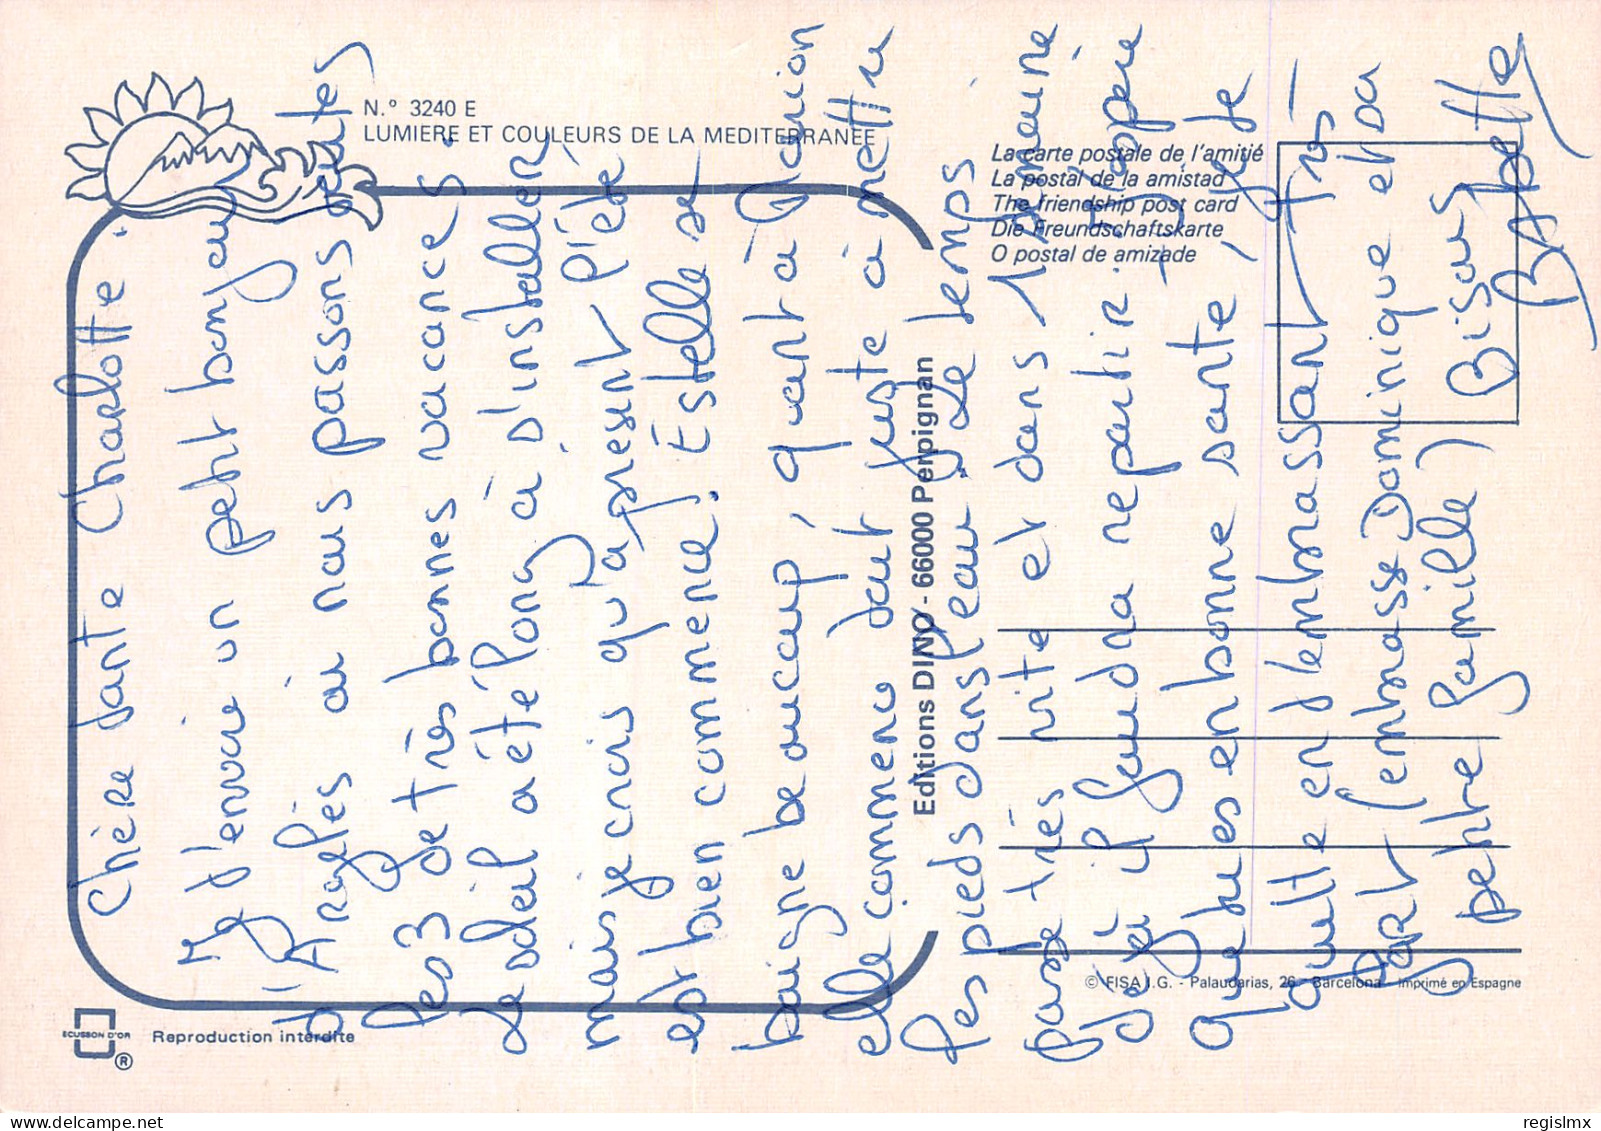 N.° 3240 E
LUMIERE ET COULEURS DE LA MEDITERRANEE
La carte postale de l'amitié
La postal de la amistad
The friendship post card
Die Freundschaftskarte
O postal de amizade
Editions DINO - 66000 Perpignan
© FISA I.G. - Palaudarias, 26 - Barcelona - Imprimé en Espagne
ECUSSON D'OR
®
Reproduction interdite
Chère tante Charlotte.
Je t'envoie un petit bonjour
d'Argelès où nous passons toutes
les 3 de très bonnes vacances.
Le soleil a été long à s'installer
mais je crois qu'à présent l'été
est bien commencé! Estelle se
baigne beaucoup, quant à Marion
elle commence tout juste à mettre
les pieds dans l'eau. Le temps
passe très vite et dans 1 semaine
déjà il faudra repartir. J'espère
que tu es en bonne santé, je te
quitte en t'embrassant très
fort (embrasse Dominique et sa
petite famille) Bisous
Babette
regislmx